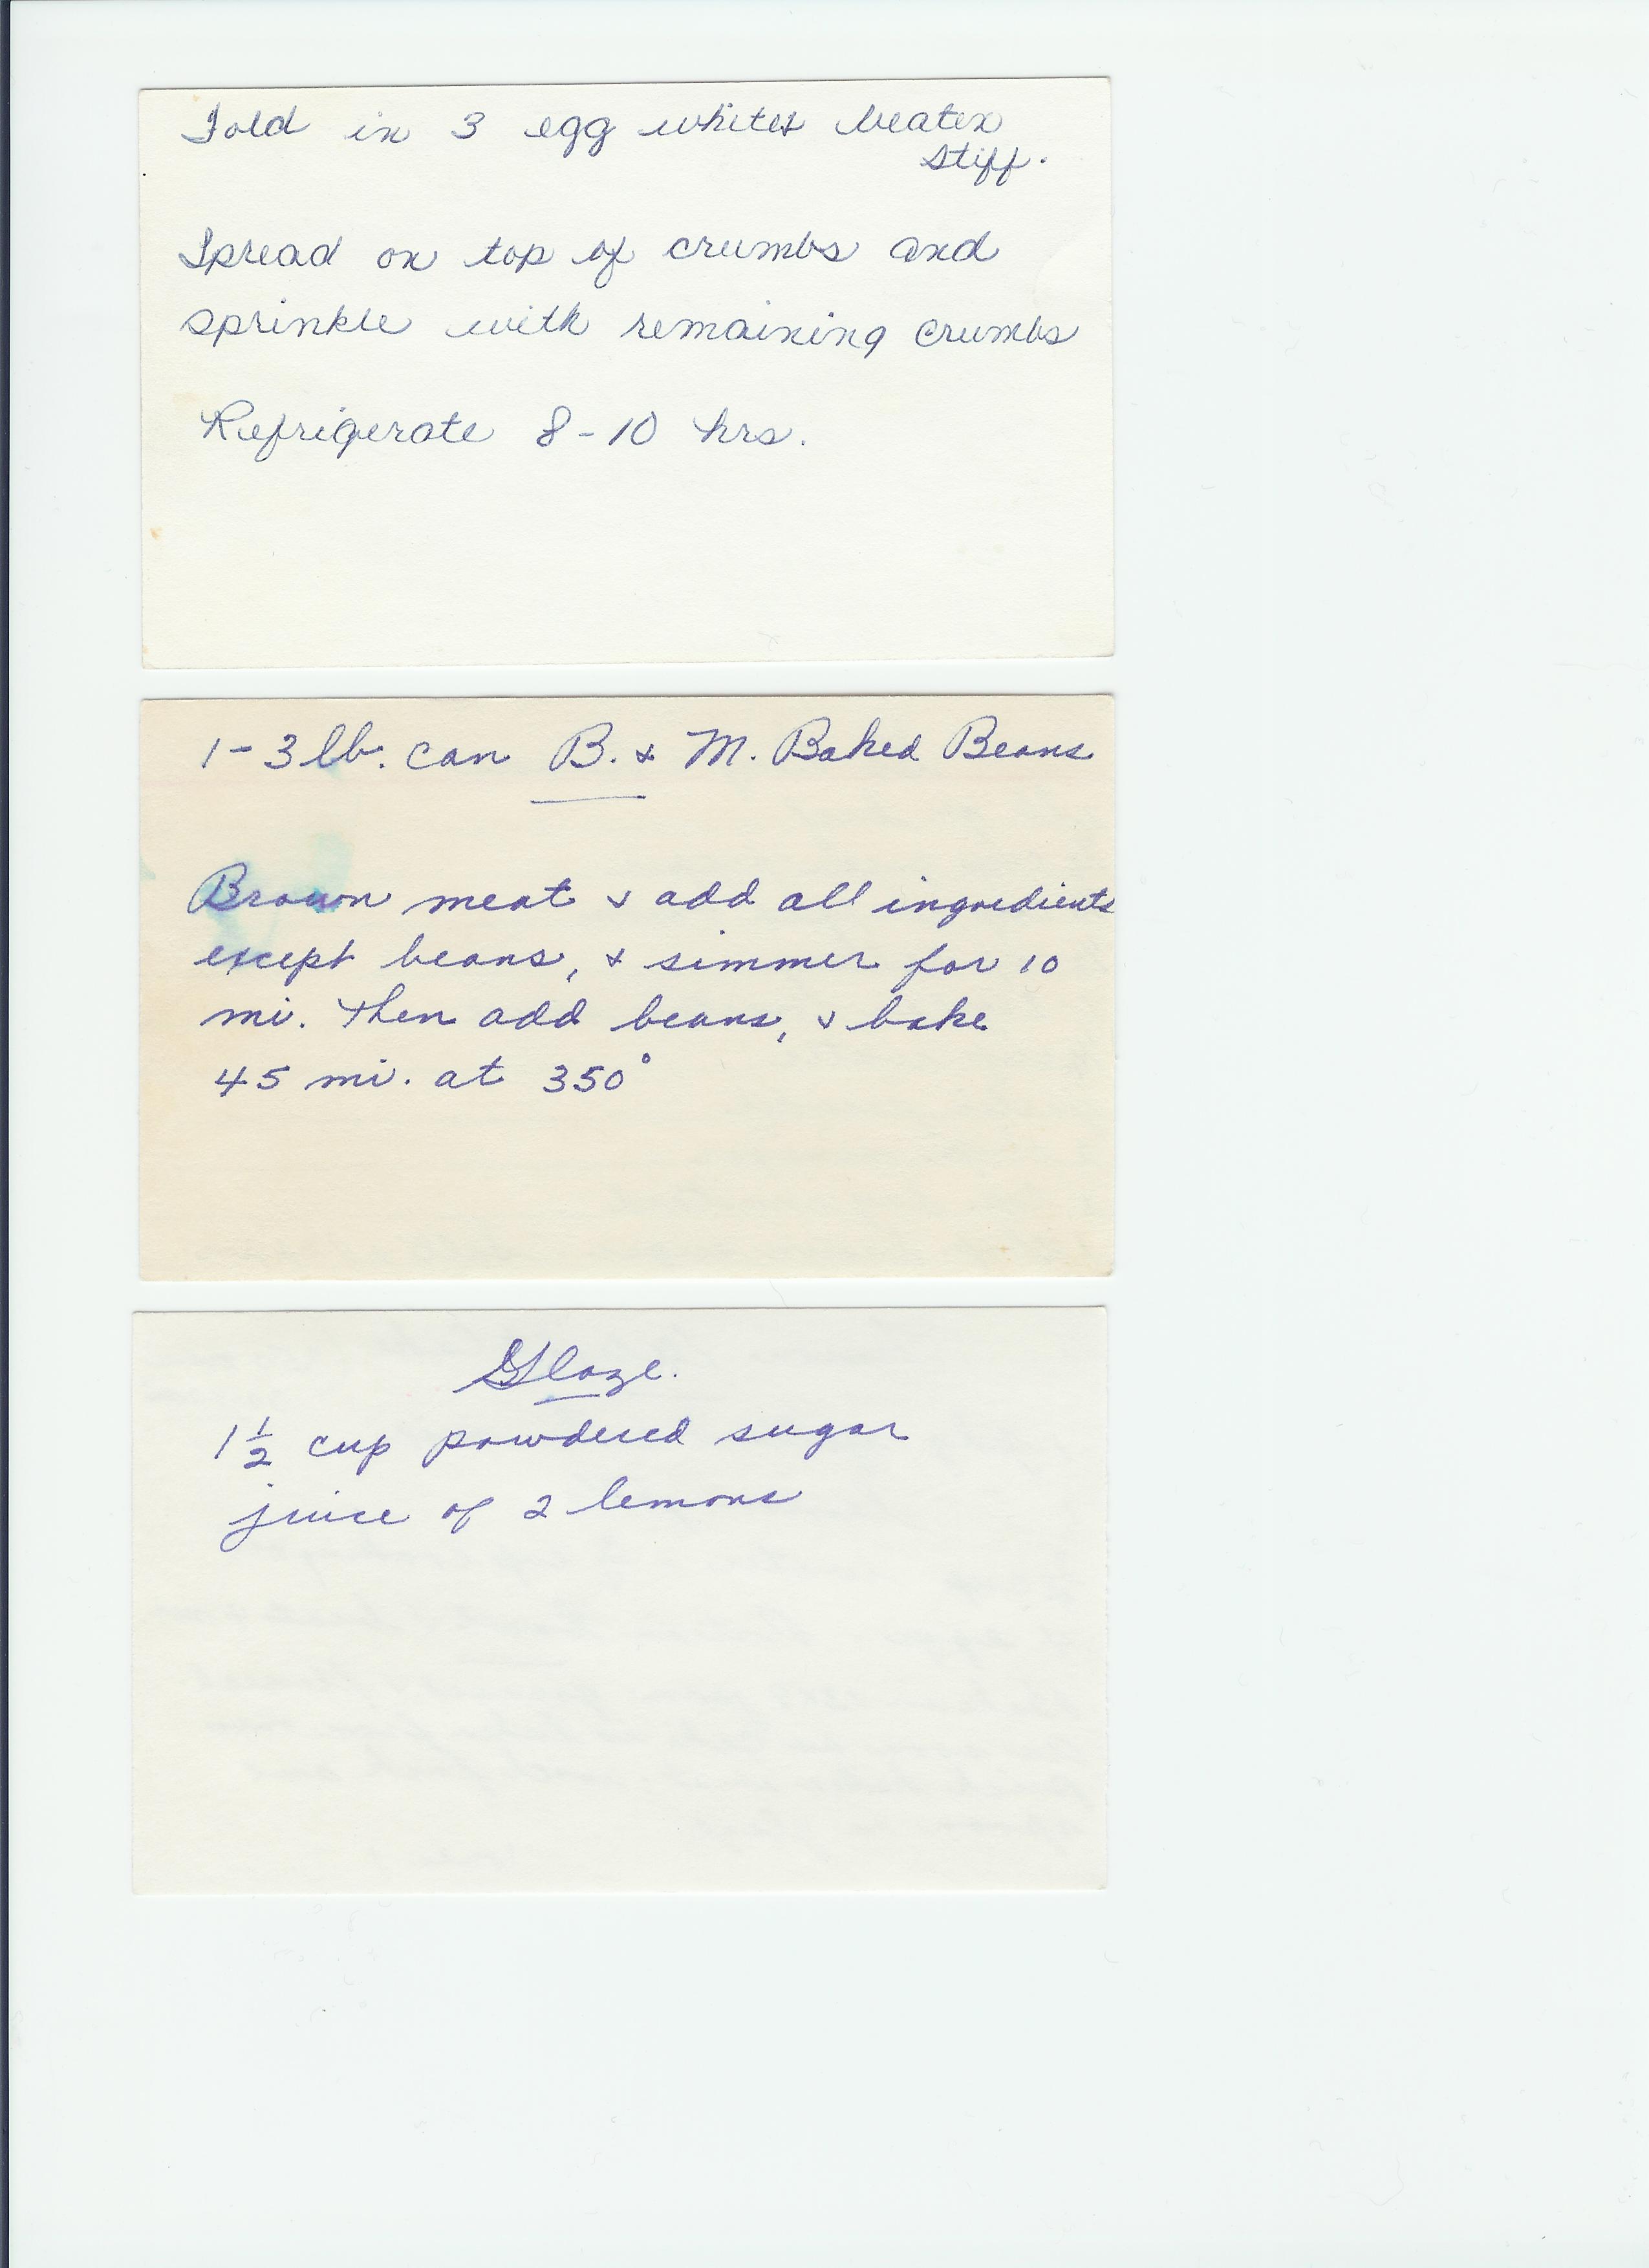 Fold in 3 egg whites beaten
stiff.
Spread on top of crumbs and
sprinkle with remaining crumbs
Refrigerate 8-10 hrs.
1-3 lb. can B. & M. Baked Beans
Brown meat & add all ingredients
except beans, & simmer for 10
mi. Then add beans, & bake
45 mi. at 350°
Glaze.
1 1/2 cup powdered sugar
juice of 2 lemons